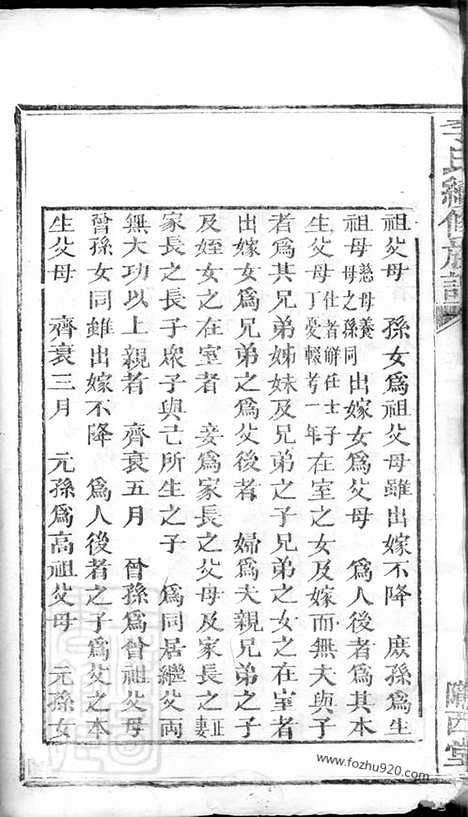 李氏續修族譜
隴西堂
祖父母　孫女爲祖父母雖出嫁不降　庶孫爲生
祖母慈母養母之孫同　出嫁女爲父母　爲人後者爲其本
生父母仕者解任士子丁憂輟考一年在室之女及嫁而無夫與子
者爲其兄弟姊妹及兄弟之子兄弟之女之在室者
出嫁女爲兄弟之爲父後者　婦爲夫親兄弟之子
及姪女之在室者　妾爲家長之父母及家長之正妻
家長之長子衆子與己所生之子　爲同居繼父兩
無大功以上親者　齊衰五月　曾孫爲曾祖父母
曾孫女同雖出嫁不降　爲人後者之子爲父之本
生父母　齊衰三月　元孫爲高祖父母　元孫女
www.fozhu920.com